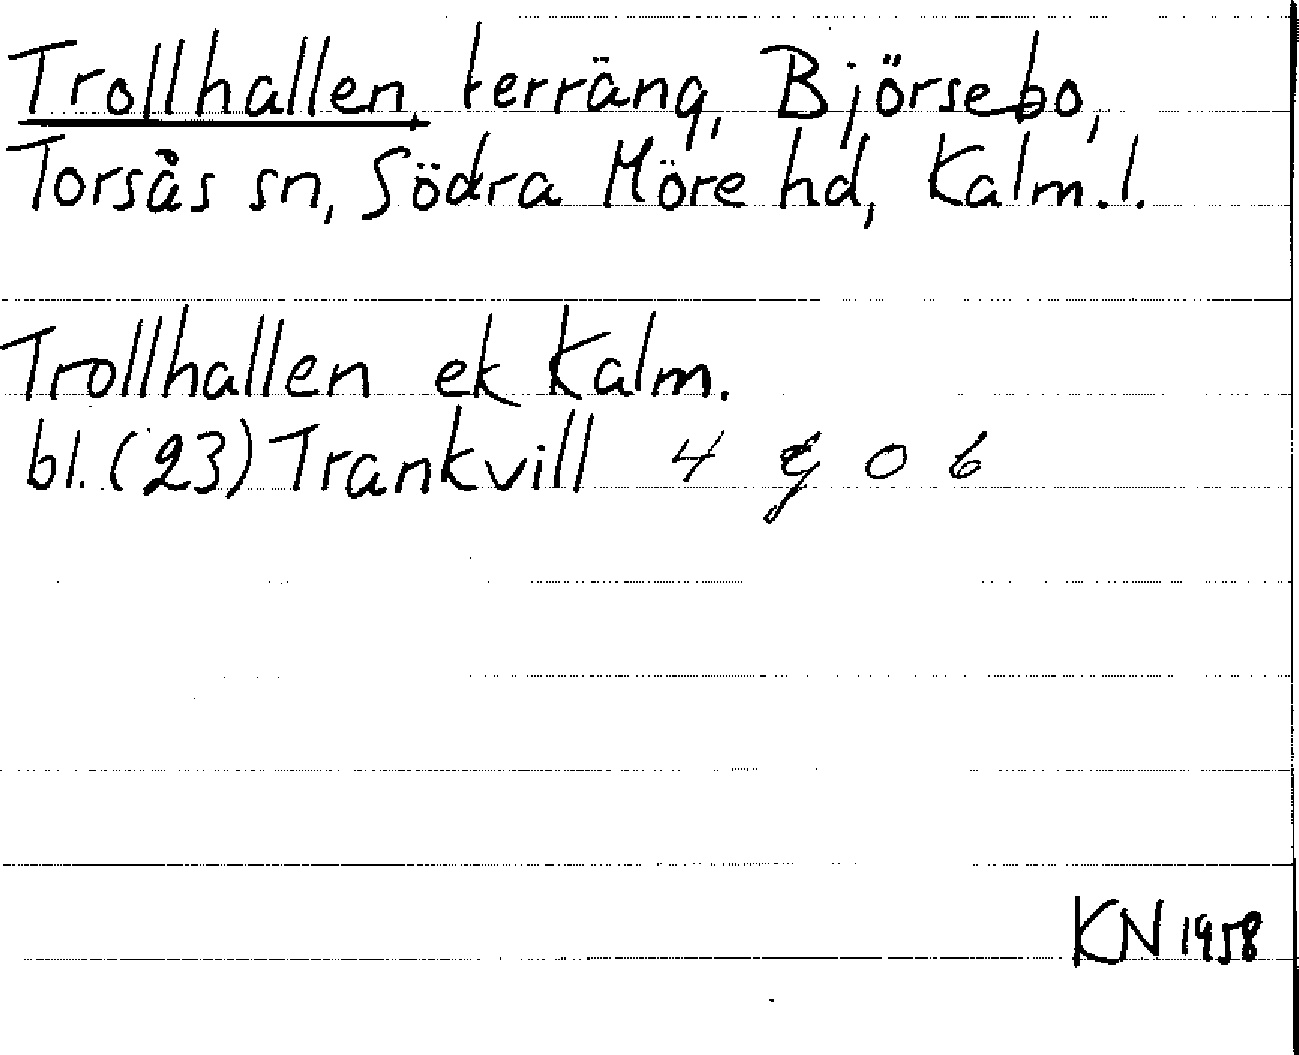 Trollhallen, terräng, Björsebo,
Torsås sn, Södra Möre hd, Kalm.l.
Trollhallen ek Kalm.
bl. (23) Trankvill 4 g 0 6
KN 1958